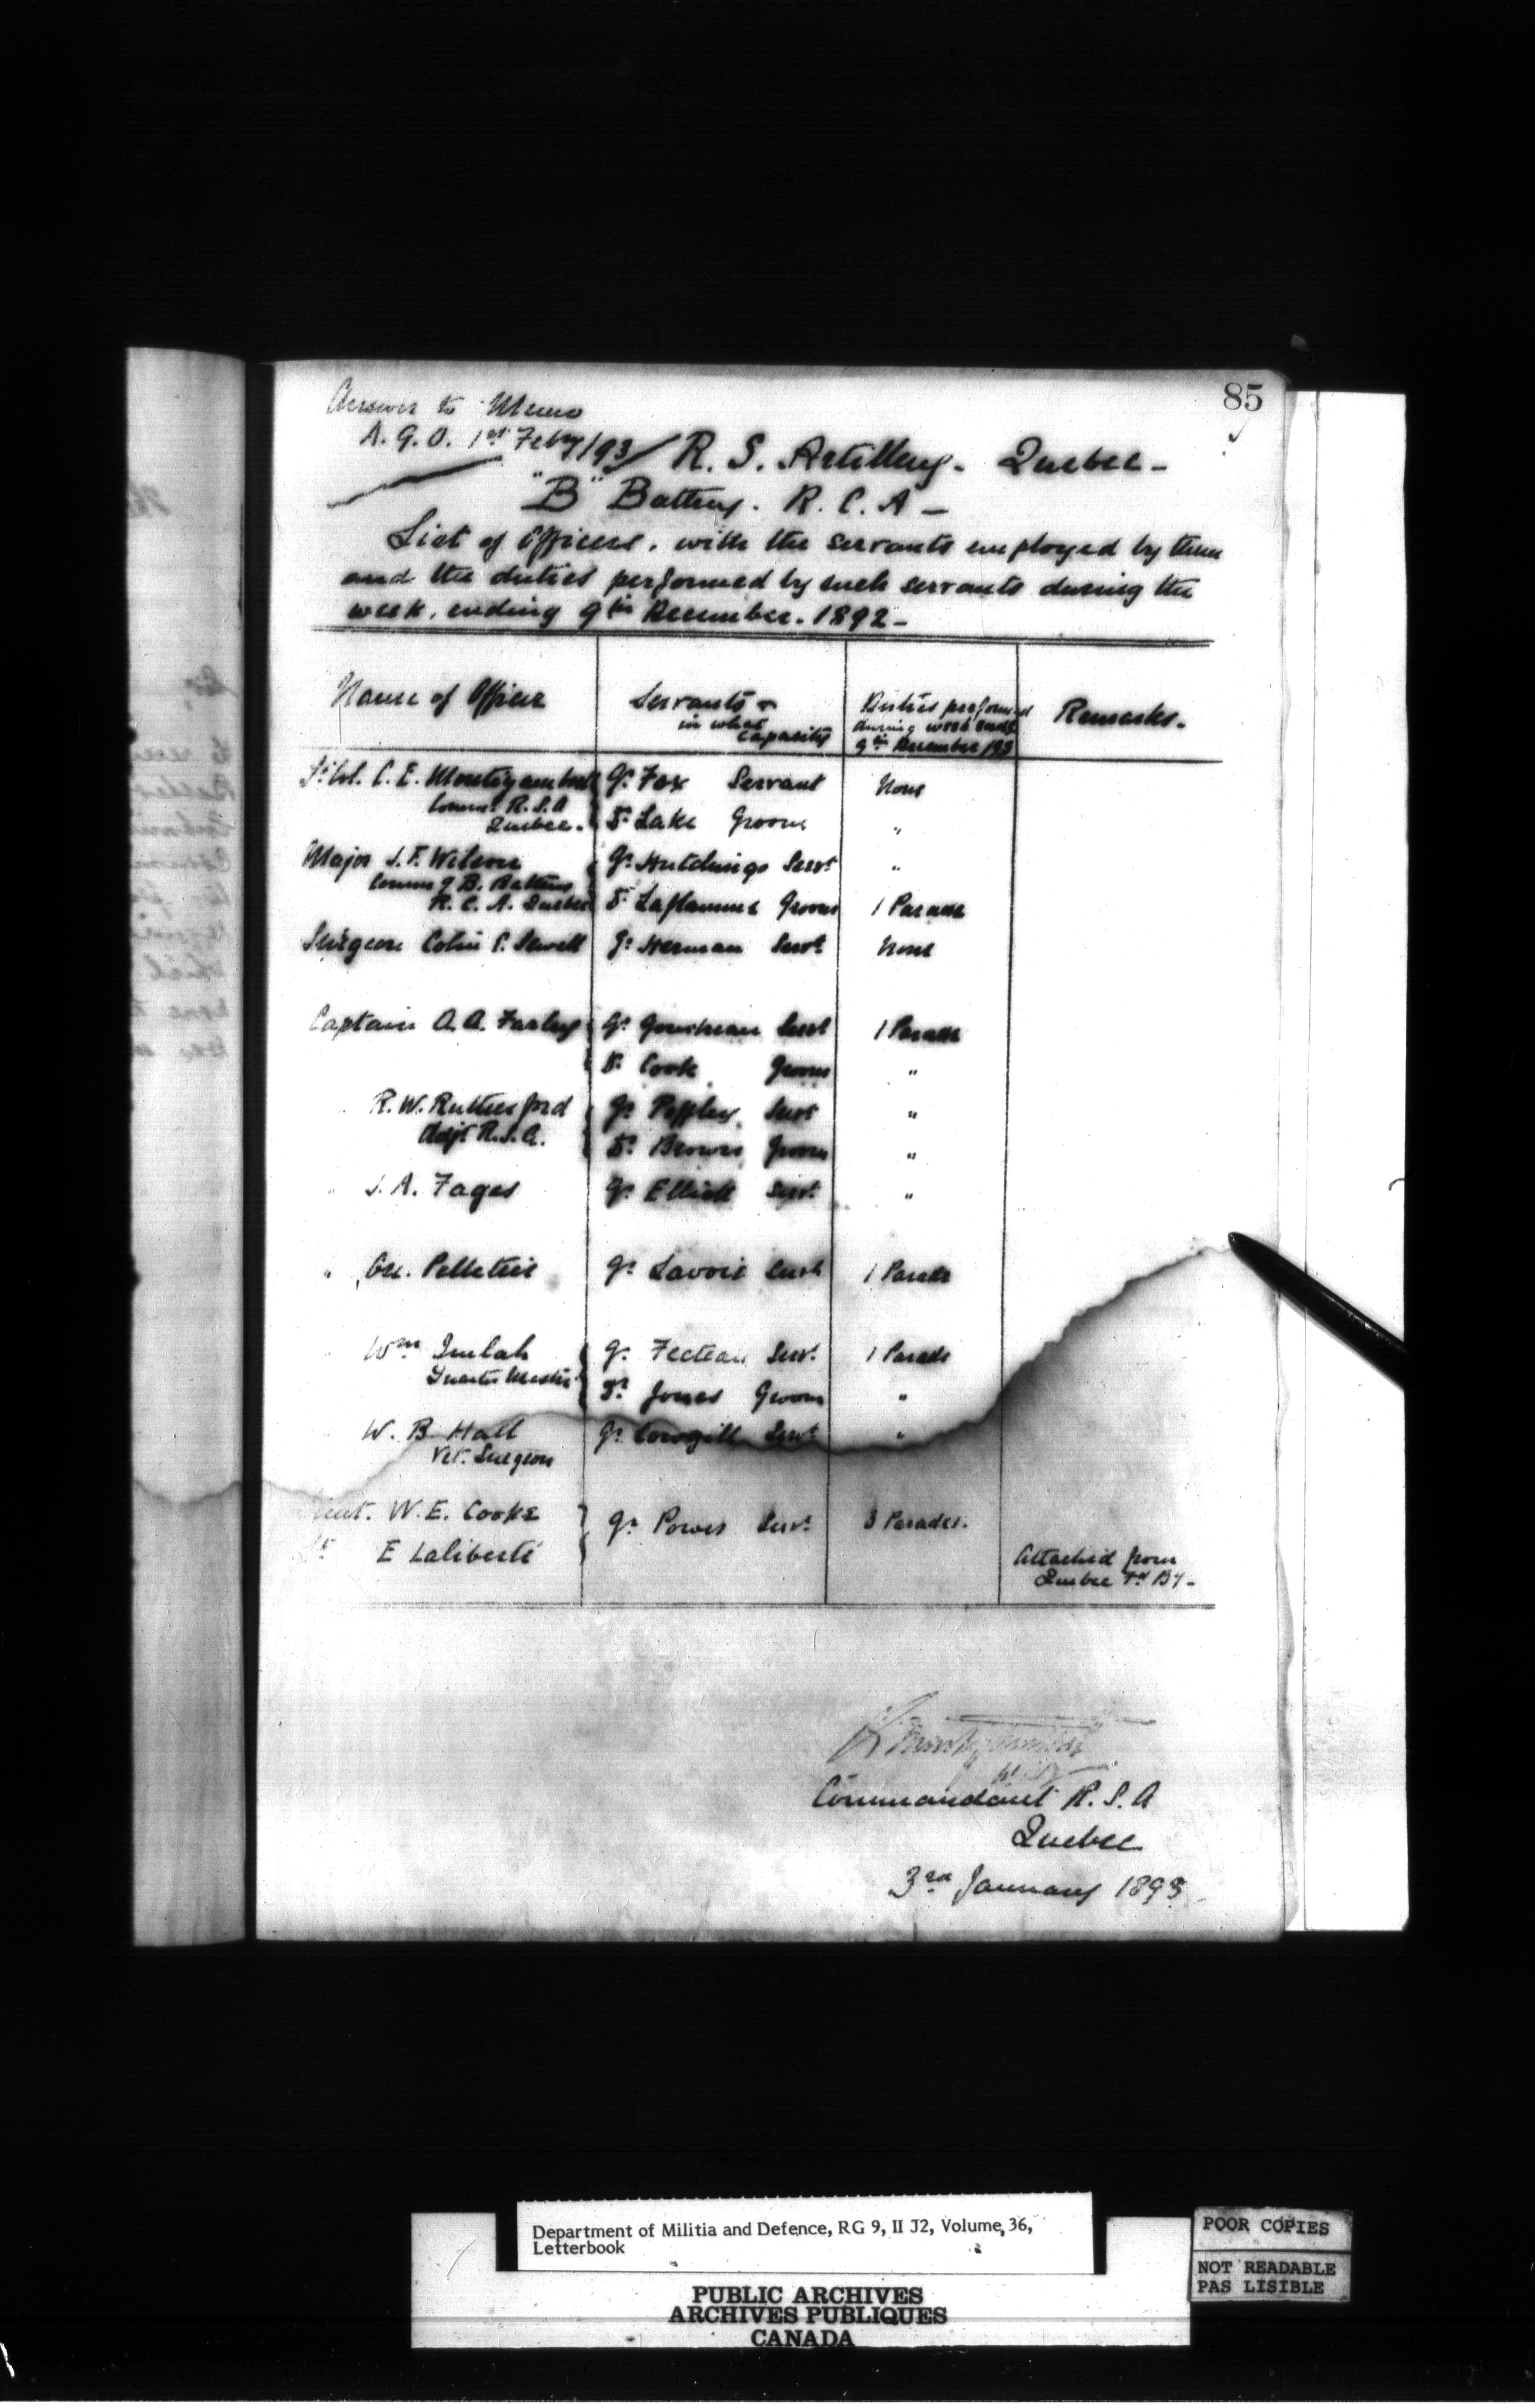 85
Answer to Memo
A. G. O. 1st Feby/93 / R. S. Artillery. Quebec -
"B" Battery. R. C. A -
List of Officers, with the servants employed by them
and the duties performed by such servants during the
week, ending 9th December. 1892 -
Name of Officer Servants & in what capacity Duties performed during week endg 9th December Remarks.
Lt Col. C. E. Montizambert Gr Fox Servant None
Commt R.S.A
Quebec. Dr Lake Groom "
Major J. F. Wilson Gr Hutchings Servt "
Comm g B. Battery
R. C. A. Quebec Dr Laflamme Groom 1 Parade
Surgeon Colin C. Sewell Gr Herman Servt None
Captain A. A. Farley Gr Servt 1 Parade
Dr Cook Groom "
R. W. Rutherford Gr Servt "
Adjt R.S.A. Dr Brown Groom "
" J. A. Fages Gr Elliott Servt "
" Oct. Pelletier Gr Lavoie Servt 1 Parade
Wm Imlah Gr Fecteau Servt 1 Parade
Quarter Master Dr Jones Groom "
W. B Hall Gr Cowgill Servt "
Vet. Surgeon
Lieut. W. E. Cooke Gr Power Servt 3 Parades.
Lt E Laliberté Attached from
Quebec Fd By -
Commandant R. S. A
Quebec
3rd January 1893
Department of Militia and Defence, RG 9, II J2, Volume 36,
Letterbook
POOR COPIES
NOT READABLE
PAS LISIBLE
PUBLIC ARCHIVES
ARCHIVES PUBLIQUES
CANADA